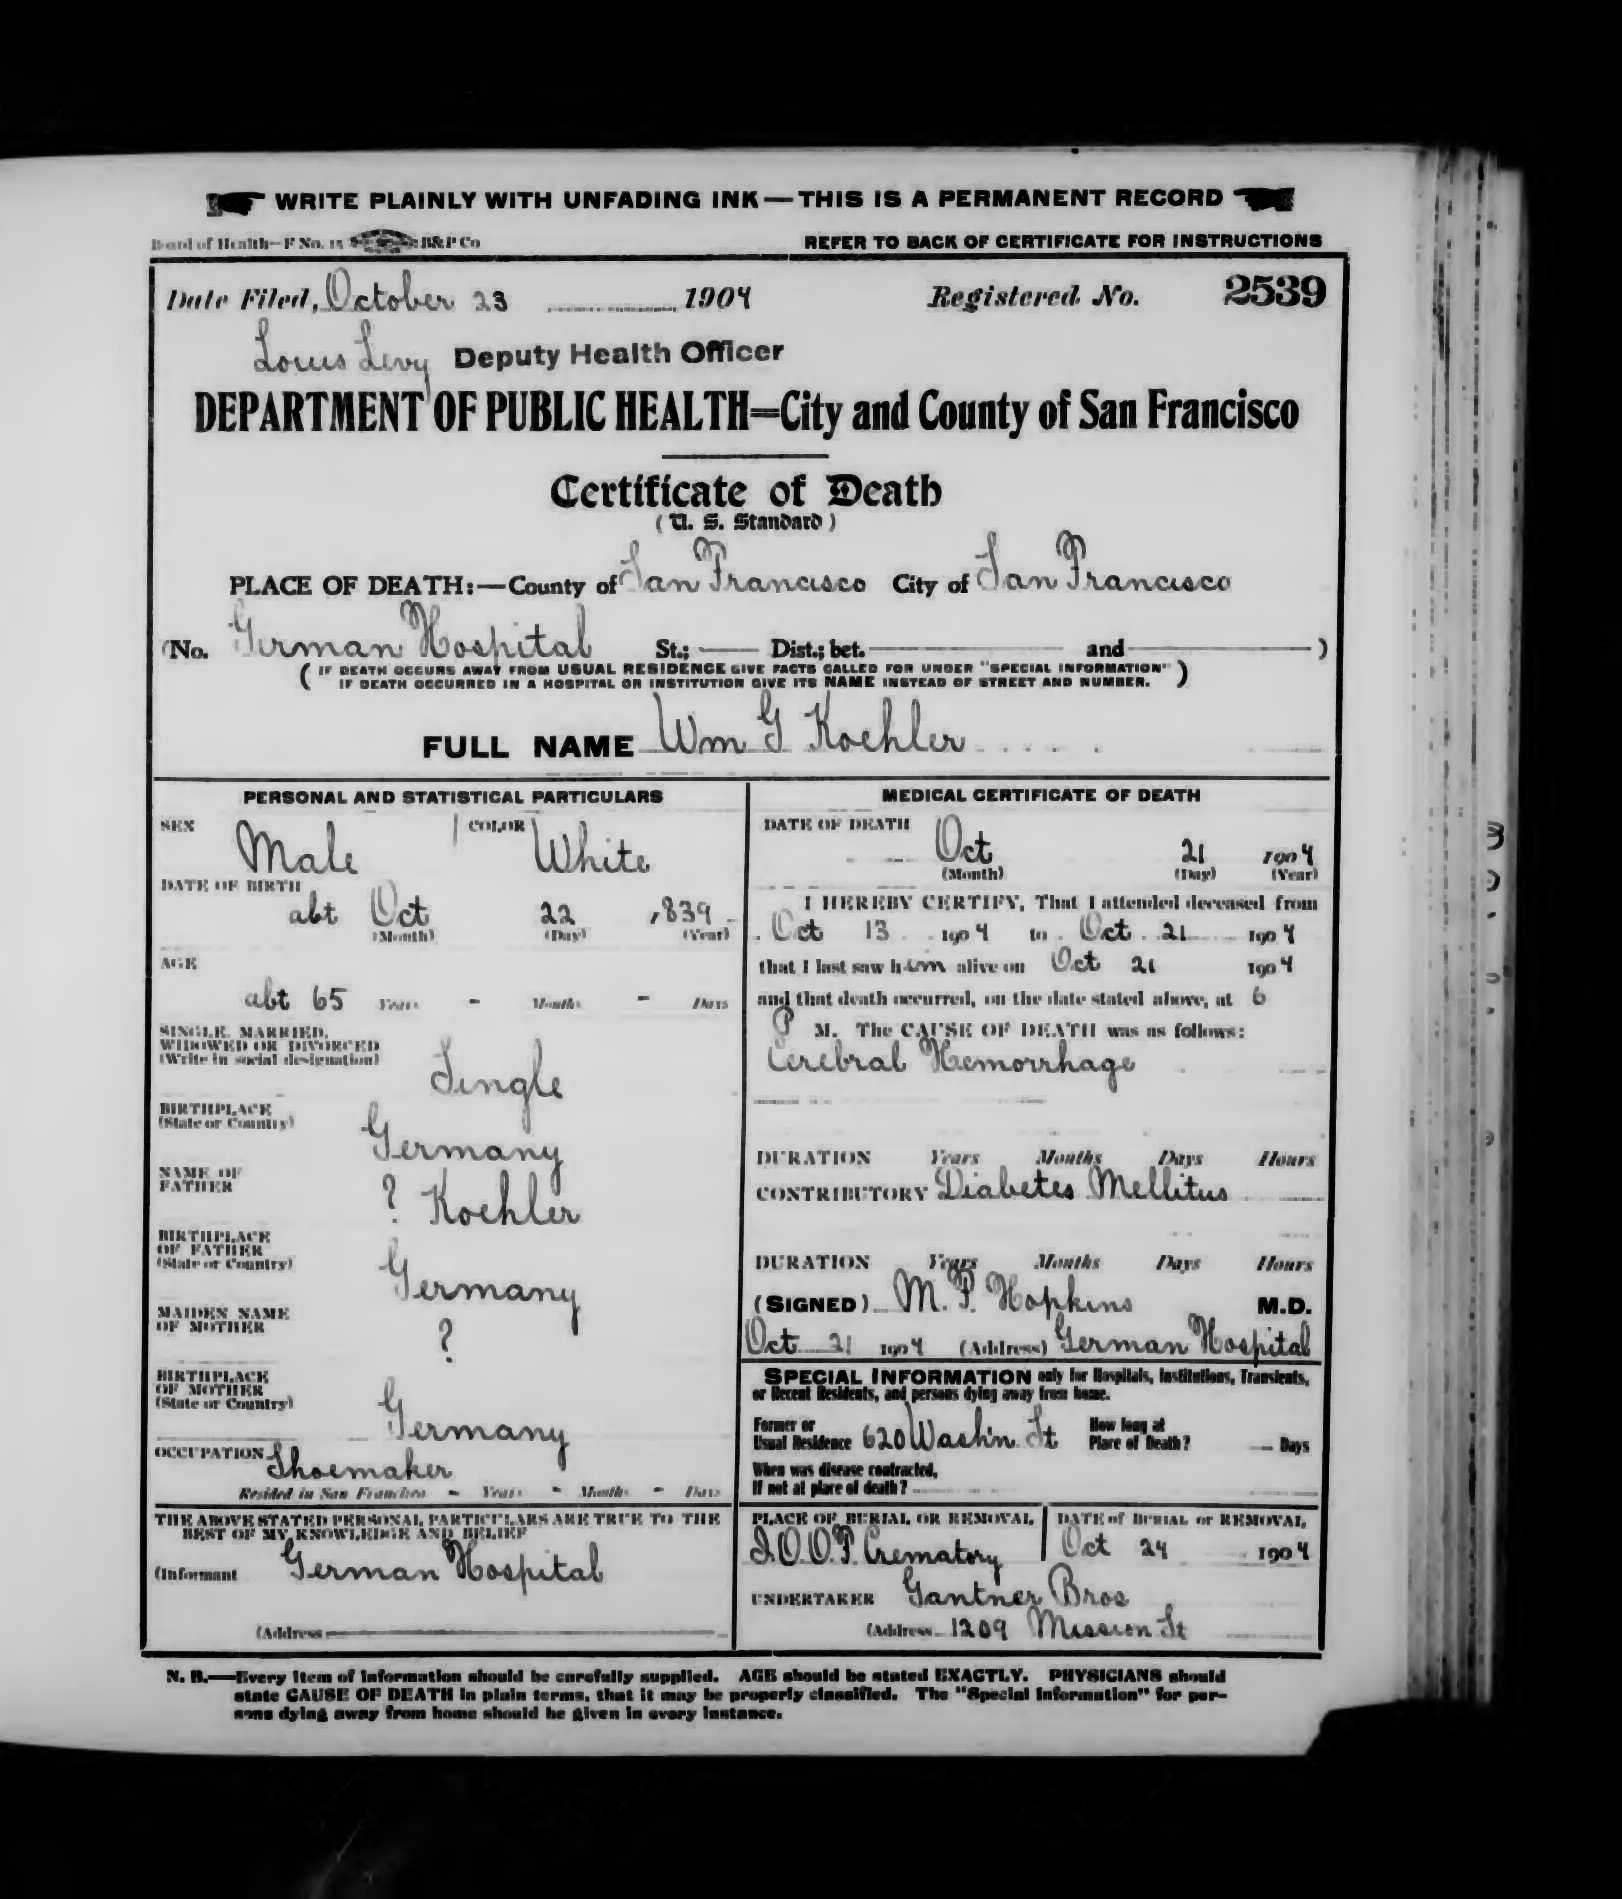 WRITE PLAINLY WITH UNFADING INK—THIS IS A PERMANENT RECORD
Board of Health—F No. 15 B&P Co
REFER TO BACK OF CERTIFICATE FOR INSTRUCTIONS
Date Filed, October 23 1904 Registered No. 2539
Louis Levy Deputy Health Officer
DEPARTMENT OF PUBLIC HEALTH=City and County of San Francisco
Certificate of Death
(U. S. Standard)
PLACE OF DEATH:—County of San Francisco City of San Francisco
(No. German Hospital St.; — Dist.; bet. — and — )
( IF DEATH OCCURS AWAY FROM USUAL RESIDENCE GIVE FACTS CALLED FOR UNDER "SPECIAL INFORMATION"
IF DEATH OCCURRED IN A HOSPITAL OR INSTITUTION GIVE ITS NAME INSTEAD OF STREET AND NUMBER. )
FULL NAME Wm G Koehler
PERSONAL AND STATISTICAL PARTICULARS
SEX Male COLOR White
DATE OF BIRTH
abt Oct 22 , 839
(Month) (Day) (Year)
AGE
abt 65 Years - Months - Days
SINGLE, MARRIED,
WIDOWED OR DIVORCED
(Write in social designation)
Single
BIRTHPLACE
(State or Country)
Germany
NAME OF
FATHER
? Koehler
BIRTHPLACE
OF FATHER
(State or Country)
Germany
MAIDEN NAME
OF MOTHER
?
BIRTHPLACE
OF MOTHER
(State or Country)
Germany
OCCUPATION Shoemaker
Resided in San Francisco - Years - Months - Days
THE ABOVE STATED PERSONAL PARTICULARS ARE TRUE TO THE
BEST OF MY KNOWLEDGE AND BELIEF
(Informant German Hospital
(Address —
MEDICAL CERTIFICATE OF DEATH
DATE OF DEATH
Oct 21 1904
(Month) (Day) (Year)
I HEREBY CERTIFY, That I attended deceased from
Oct 13 1904 to Oct 21 1904
that I last saw him alive on Oct 21 1904
and that death occurred, on the date stated above, at 6
P M. The CAUSE OF DEATH was as follows:
Cerebral Hemorrhage
DURATION Years Months Days Hours
CONTRIBUTORY Diabetes Mellitus
DURATION Years Months Days Hours
(SIGNED) M. P. Hopkins M.D.
Oct 21 1904 (Address) German Hospital
SPECIAL INFORMATION only for Hospitals, Institutions, Transients,
or Recent Residents, and persons dying away from home.
Former or
Usual Residence 620 Wash'n St
How long at
Place of Death? — Days
When was disease contracted,
If not at place of death?
PLACE OF BURIAL OR REMOVAL
I.O.O.F. Crematory
DATE of BURIAL or REMOVAL
Oct 24 1904
UNDERTAKER Gantner Bros
(Address 1209 Mission St
N. B.—Every item of information should be carefully supplied. AGE should be stated EXACTLY. PHYSICIANS should
state CAUSE OF DEATH in plain terms, that it may be properly classified. The "Special Information" for per-
sons dying away from home should be given in every instance.